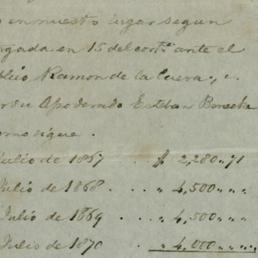 en nuestro lugar segun
ngada en 15 del corte ante el
blico Ramon de la Cueva, i
Apoderado Esteban
omo sigue.
Julio de 1867 . . $ 2,280 " 71
Julio de 1868 . . " 4,500 " "
Julio de 1869 . . " 4,500 " "
Julio de 1870 . . " 4,000 " "